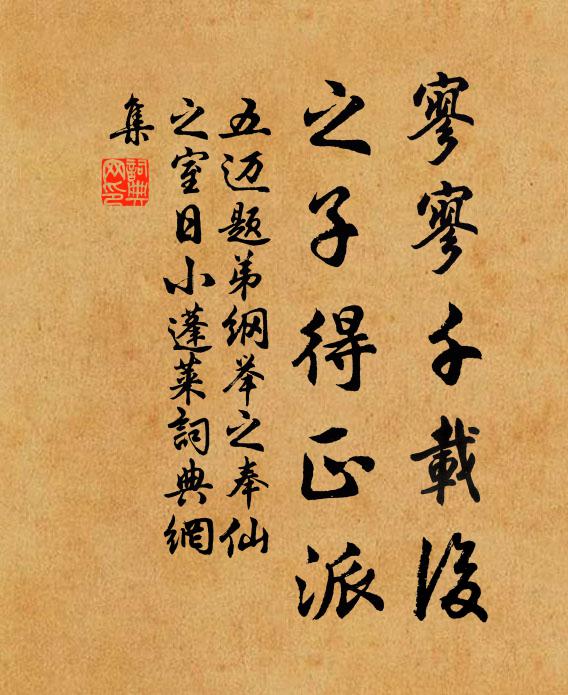 寥寥千載後
之子得正派
五迈题弟纲举之奉仙
之室日小蓬萊詞典網
集
詞典网印